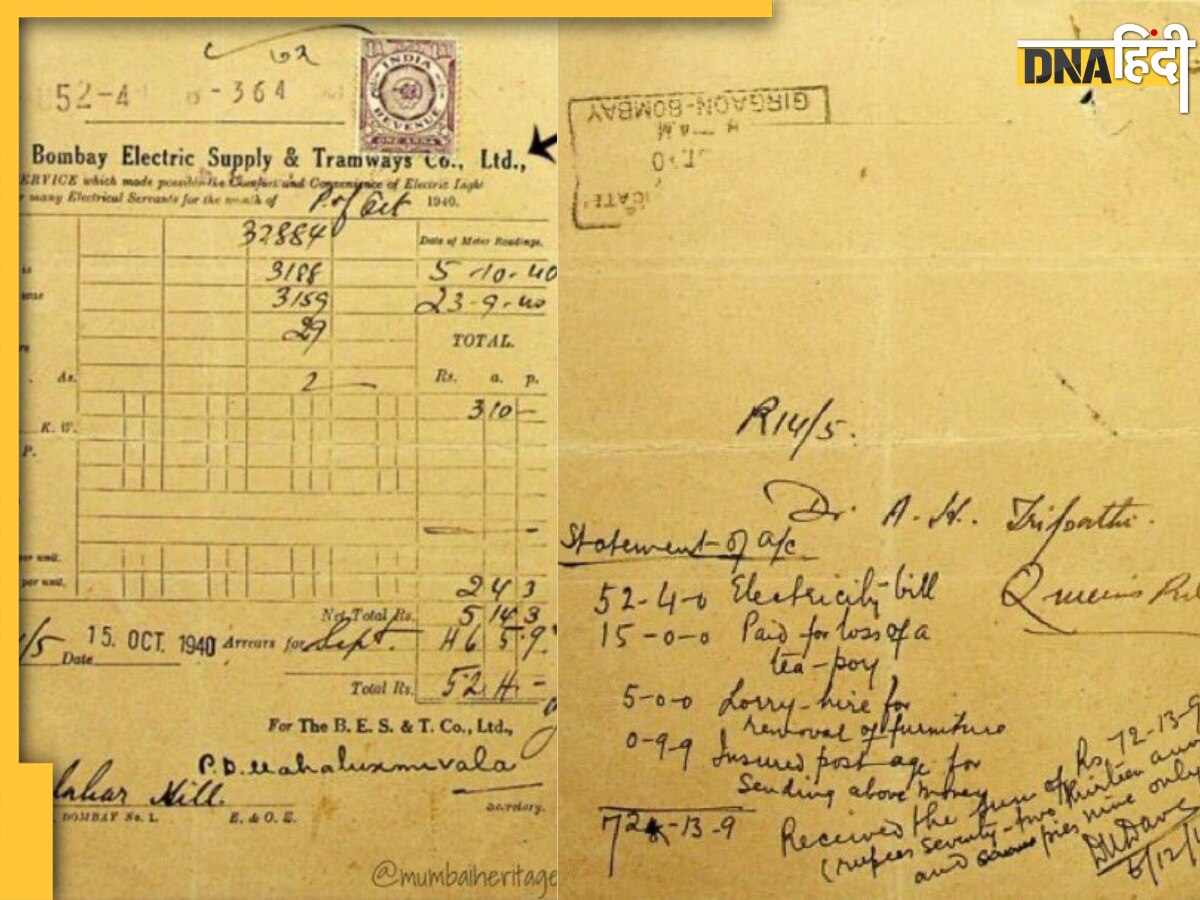 DNA हिंदी
52-4 - 364
INDIA
REVENUE
ONE ANNA
Bombay Electric Supply & Tramways Co., Ltd.,
ERVICE which made possible the Comfort and Convenience of Electric Light
many Electrical Servants for the month of P. of Oct 1940.
32884
Date of Meter Readings.
3188 5-10-40
3159 23-9-40
29
TOTAL.
As. 2 Rs. a. p.
3 10 -
K. W.
P.
per unit.
per unit. 2 4 3
Net Total Rs. 5 14 3
/5 15 OCT. 1940 Arrears for Sept. 46 5 9
Date
Total Rs. 52 4 -
For The B. E. S. & T. Co., Ltd.,
P. D. Mahaluxmivala
Secretary.
Hill.
BOMBAY No. 1. E. & O. E.
@mumbaiheritage
GIRGAON-BOMBAY
R14/5.
Dr. A. H. Tripathi.
Statement of a/c
52-4-0 Electricity bill
15-0-0 Paid for loss of a
tea-poy
5-0-0 Lorry-hire for
removal of furniture
0-9-9 Insured postage for
sending above money
72-13-9
Received the sum of Rs. 72-13-9
(rupees seventy-two thirteen
and pies nine only
6/12/